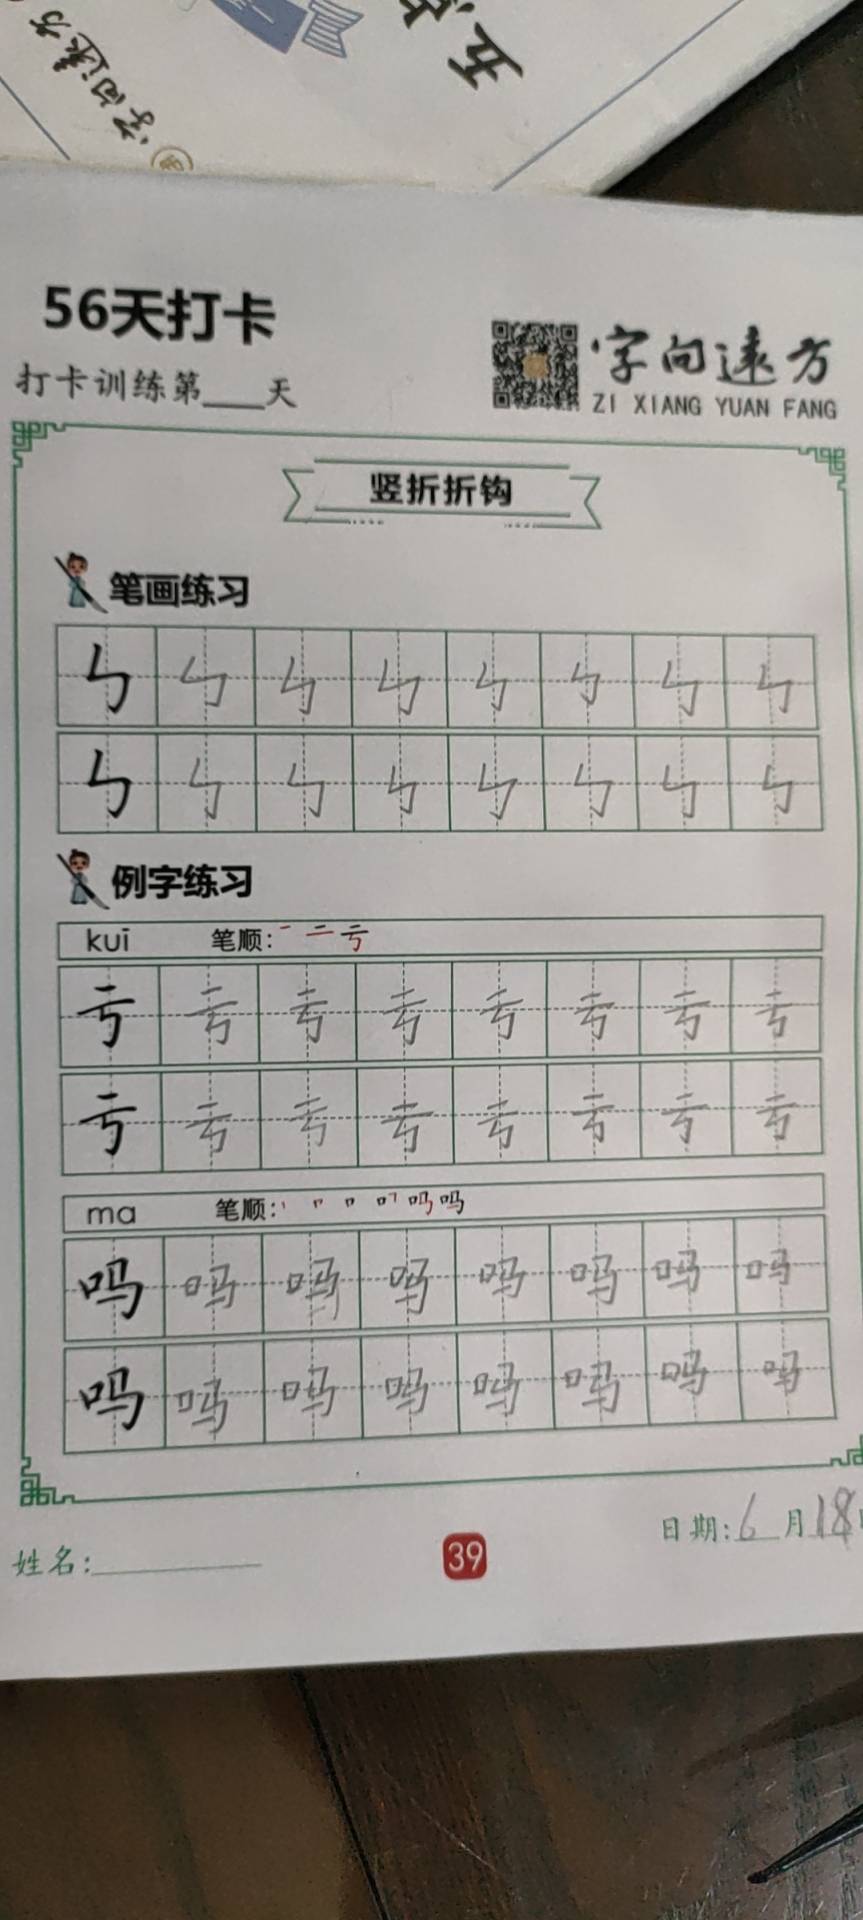 字向远方
五
56天打卡
打卡训练第___天
字向远方
ZI XIANG YUAN FANG
竖折折钩
笔画练习
㇉ ㇉ ㇉ ㇉ ㇉ ㇉ ㇉ ㇉
㇉ ㇉ ㇉ ㇉ ㇉ ㇉ ㇉ ㇉
例字练习
kuī 笔顺: 一 二 亏
亏 亏 亏 亏 亏 亏 亏 亏
亏 亏 亏 亏 亏 亏 亏 亏
ma 笔顺: 丨 冂 口 吗 吗
吗 吗 吗 吗 吗 吗 吗 吗
吗 吗 吗 吗 吗 吗 吗 吗
日期:6月18日
姓名:
39